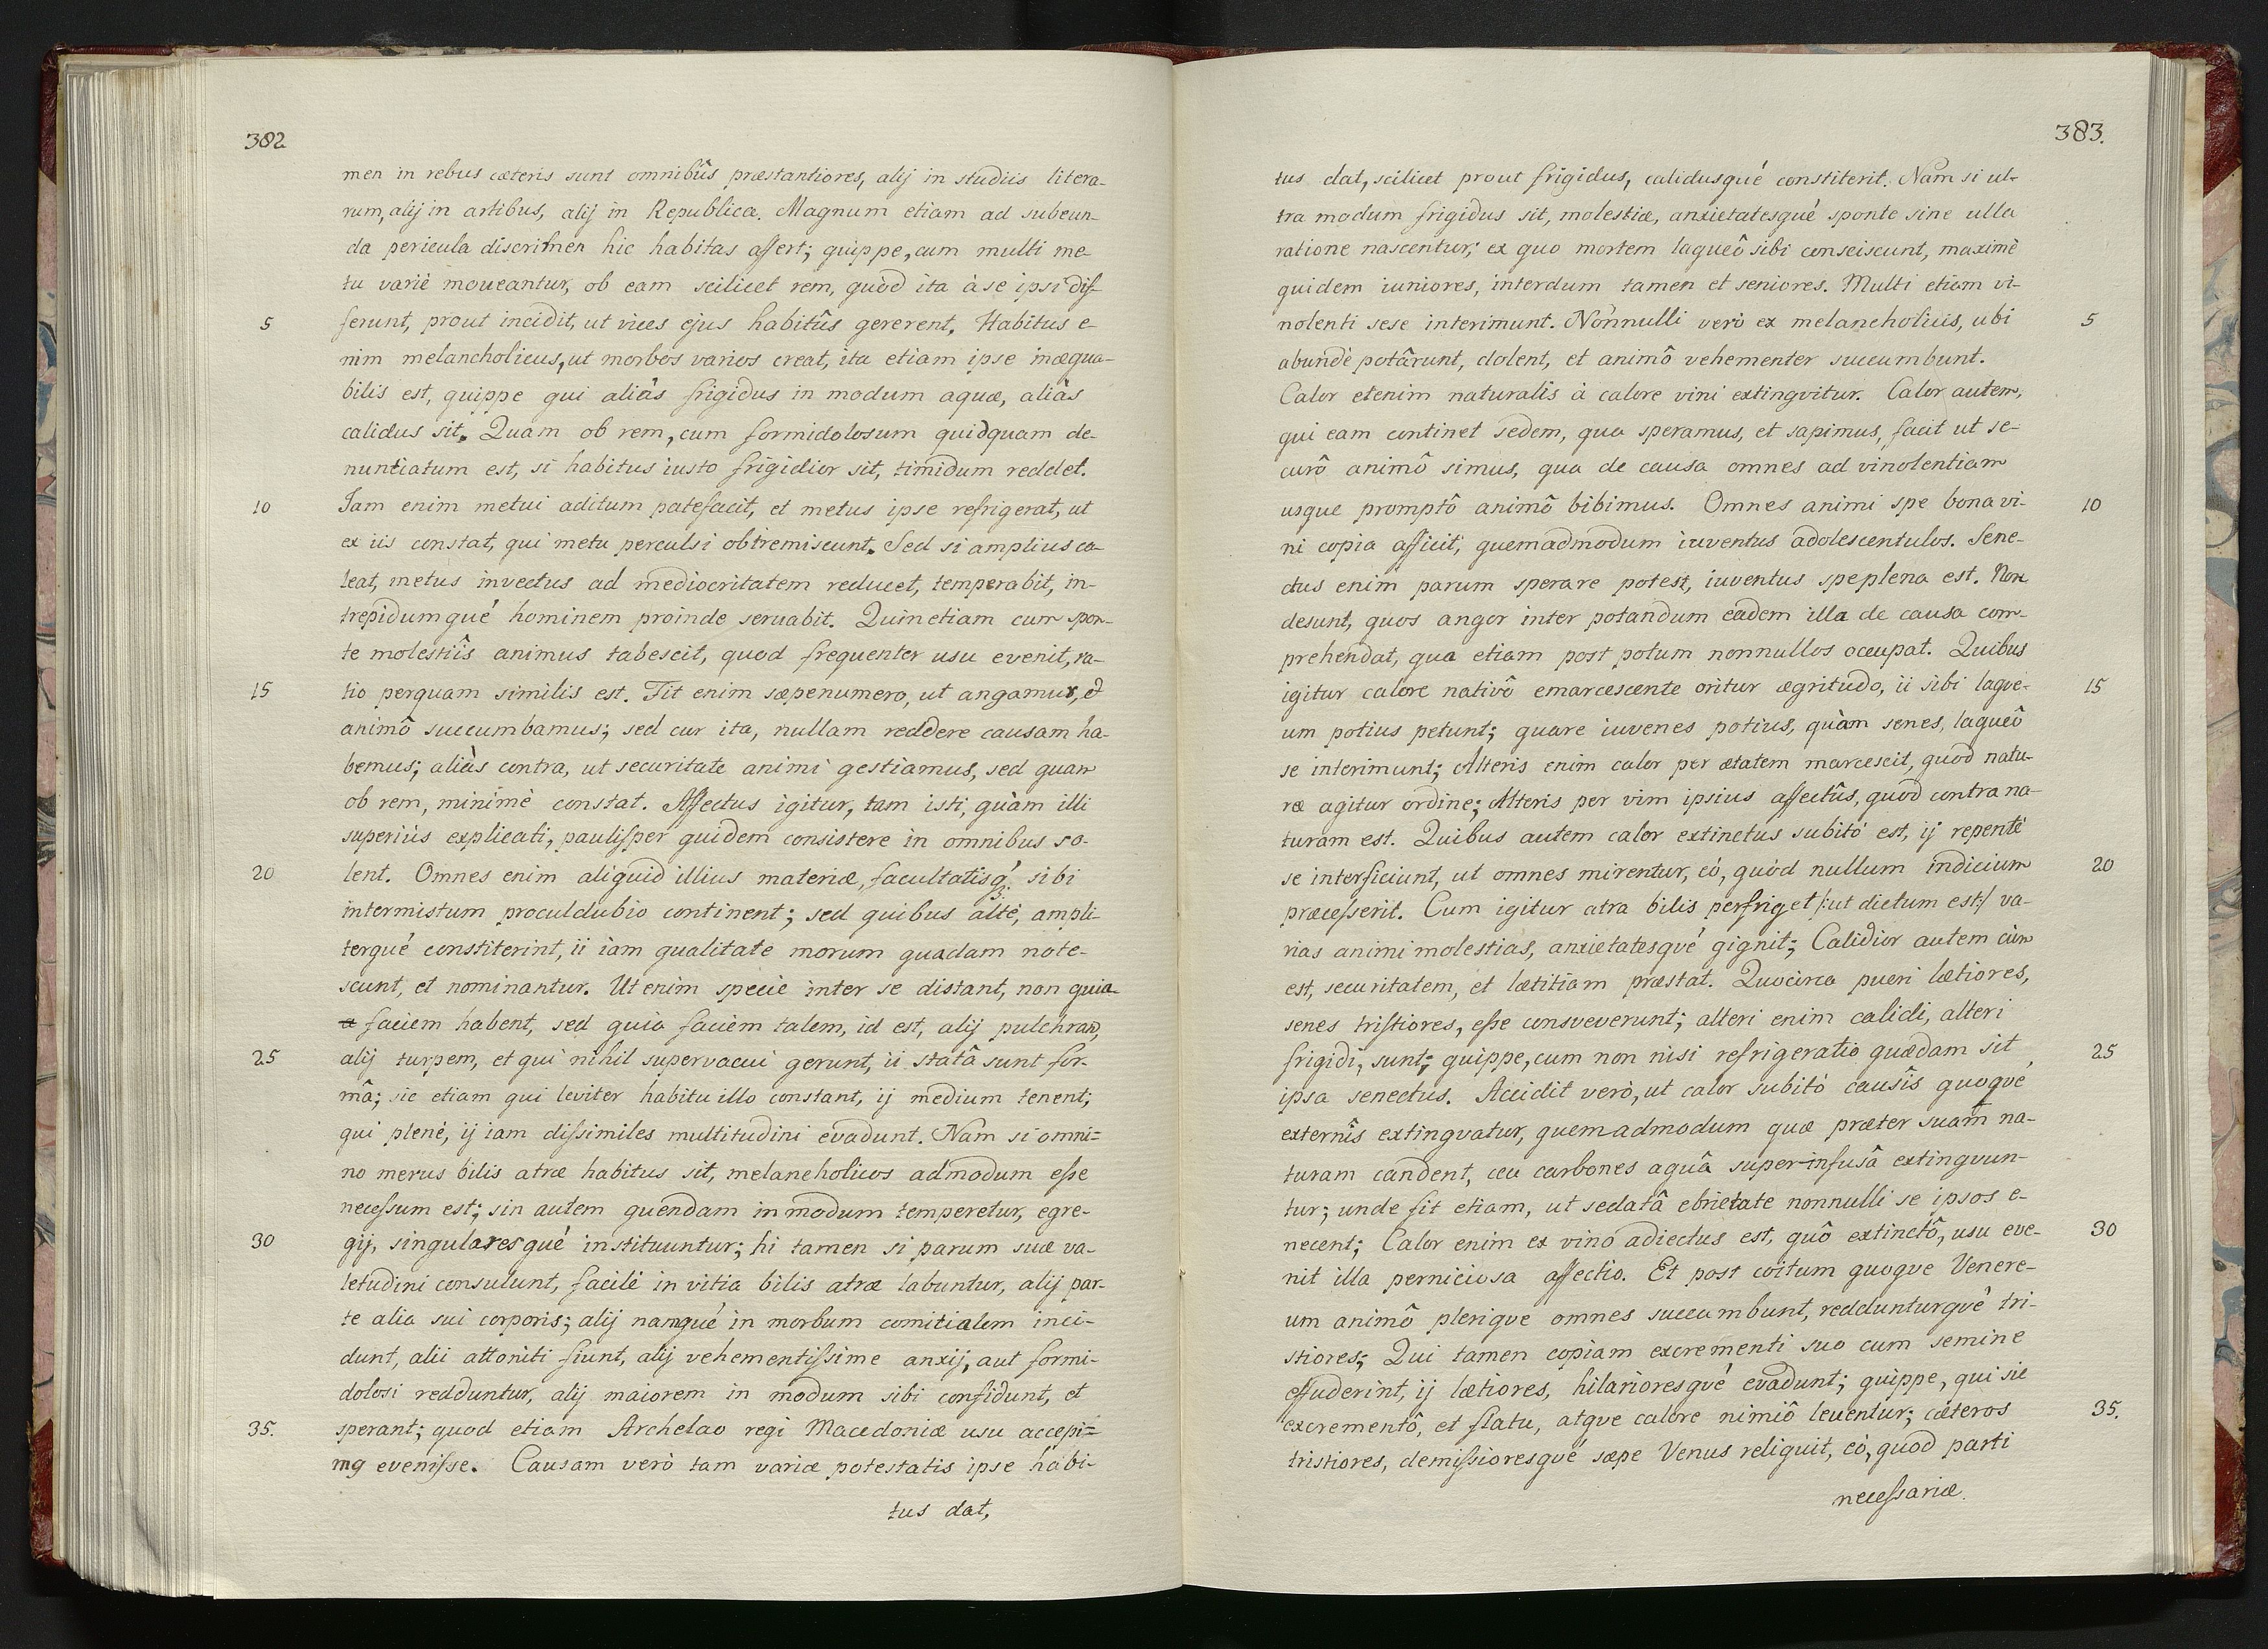 382
men in rebus cæteris sunt omnibûs præstantiores, alij in studiis litera-
rum, alij in artibus, alij in Republica. Magnum etiam ad subeun-
da pericula discrimen hic habitas affert; quippe, cum multi me-
tu variè moueantur, ob eam scilicet rem, quòd ita à se ipsi dif-
5 ferunt, prout incidit, ut vices ejus habitûs gererent. Habitus e-
nim melancholicus, ut morbos varios creat, ita etiam ipse inæqua-
bilis est, quippe qui aliàs frigidus in modum aquæ, aliàs
calidus sit. Quam ob rem, cum formidolosum quidquam de-
nuntiatum est, si habitus iusto frigidior sit, timidum reddet.
10 Iam enim metui aditum patefacit, et metus ipse refrigerat, ut
ex iis constat, qui metu perculsi obtremiscunt. Sed si amplius ca-
leat, metus invectus ad mediocritatem reducet, temperabit, in-
trepidumqué hominem proinde seruabit. Quin etiam cum spon-
te molestiîs animus tabescit, quod frequenter usu evenit, ra-
15 tio perquam similis est. Fit enim sæpenumero, ut angamur, et
animô succumbamus; sed cur ita, nullam reddere causam ha-
bemus; aliàs contra, ut securitate animi gestiamus, sed quam
ob rem, minimè constat. Affectus igitur, tam isti, quàm illi
superiùs explicati, paulisper quidem consistere in omnibus so-
20 lent. Omnes enim aliquid illius materiæ, facultatisq́; sibi
intermistum proculdubio continent; sed quibus altè, ampli-
terqué constiterint, ii iam qualitate morum quadam note-
scunt, et nominantur. Ut enim specie inter se distant, non quia
a faciem habent, sed quia faciem talem, id est, alij pulchram,
25 alij turpem, et qui nihil supervacui gerunt, ii statâ sunt for-
mâ; sic etiam qui leviter habitu illo constant, ij medium tenent;
qui plenè, ij iam dissimiles multitudini evadunt. Nam si omni=
no merus bilis atræ habitus sit, melancholicos admodum esse
necessum est; sin autem quendam in modum temperetur, egre-
30 gij, singularesqué instituuntur; hi tamen si parum suæ va-
letudini consulunt, facilè in vitia bilis atræ labuntur, alij par-
te alia sui corporis; alij namqué in morbum comitialem inci-
dunt, alii attoniti fiunt, alij vehementissime anxij, aut formi-
dolosi redduntur, alij maiorem in modum sibi confidunt, et
35. sperant; quod etiam Archelao regi Macedoniæ usu accepi=
mꝰ evenisse. Causam verò tam variæ potestatis ipse habi-
tus dat,
383.
tus dat, scilicet prout frigidus, calidusqué constiterit. Nam si ul-
tra modum frigidus sit, molestiæ, anxietatesqué sponte sine ulla
ratione nascentur; ex quo mortem laqueô sibi consciscunt, maximè
quidem iuniores, interdum tamen et seniores. Multi etiam vi-
nolenti sese interimunt. Nonnulli verò ex melancholiis, ubi 5
abundè potârunt, dolent, et animô vehementer succumbunt.
Calor etenim naturalis à calore vini extingvitur. Calor autem,
qui eam continet sedem, qua speramus, et sapimus, facit ut se-
curô animô simus, qua de causa omnes ad vinolentiam
usque promptô animô bibimus. Omnes animi spe bona vi- 10
ni copia afficit, quemadmodum iuventus adolescentulos. Sene-
ctus enim parum sperare potest, iuventus spe plena est. Non
desunt, quos angor inter potandum eadem illa de causa com-
prehendat, qua etiam post potum nonnullos occupat. Quibus
igitur calore nativô emarcescente oritur ægritudo, ii sibi laqve- 15
um potius petunt; quare iuvenes potius, quàm senes, laqueô
se interimunt; Alteris enim calor per ætatem marcescit, quod natu-
ræ agitur ordine; Alteris per vim ipsius affectûs, quod contra na-
turam est. Quibus autem calor extinctus subitò est, ij repentè
se interficiunt, ut omnes mirentur, eò, quòd nullum indicium 20
præcesserit. Cum igitur atra bilis perfriget /:ut dictum est:/ va-
rias animi molestias, anxietatesqvé gignit; Calidior autem cùm
est, securitatem, et lætitiam præstat. Quocirca pueri lætiores,
senes tristiores, esse consveverunt; alteri enim calidi, alteri
frigidi, sunt; quippe, cum non nisi refrigeratio quædam sit 25
ipsa senectus. Accidit verò, ut calor subitò causîs quoqvé
externîs extingvatur, quemadmodum quæ præter suam na-
turam candent, ceu carbones aquâ super-infusâ extingvun-
tur; unde fit etiam, ut sedatâ ebrietate nonnulli se ipsos e-
necent; Calor enim ex vino adiectus est, quô extinctô, usu eve- 30
nit illa perniciosa affectio. Et post coitum quoqve Venere-
um animô plerique omnes succumbunt, reddunturqvé tri-
stiores; Qui tamen copiam excrementi suo cum semine
effuderint, ij lætiores, hilarioresqvé evadunt; quippe, qui sic
excrementô, et flatu, atqve calore nimiô leuentur; cæteros 35.
tristiores, demissioresqvé sæpe Venus reliquit, eò, quod parti
necessariæ.